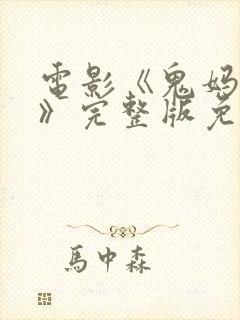 電影《鬼妈
》完整版免
馬中森